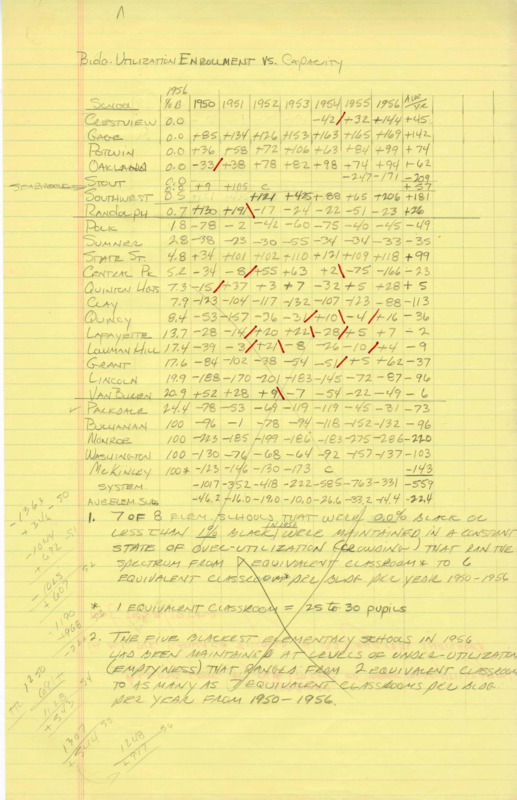 BLDG. UTILIZATION ENROLLMENT VS. CAPACITY
1956
SCHOOL %B 1950 1951 1952 1953 1954 1955 1956 AVE/YR
CRESTVIEW 0.0 -42 +32 +144 +45
GAGE 0.0 +85 +134 +126 +153 +163 +165 +169 +142
POTWIN 0.0 +36 +58 +72 +106 +63 +84 +99 +74
OAKLAND 0.0 -33 +38 +78 +82 +98 +74 +94 +62
STOUT 0.0 -247 -171 -209
+9 +105 C +57
SOUTHWEST 0.5 +121 +475 +88 +65 +206 +181
RANDOLPH 0.7 +130 +191 -17 -24 -22 -51 -23 +26
POLK 1.8 -78 -2 -42 -60 -75 -40 -45 -49
SUMNER 2.8 -38 -23 -30 -55 -34 -34 -33 -35
STATE ST. 4.8 +34 +101 +102 +110 +121 +109 +118 +99
CENTRAL PK 5.2 -34 -8 +55 +63 +2 -75 -166 -23
QUINTON HGTS 7.3 -15 +37 +3 +7 -32 +5 +28 +5
CLAY 7.9 -123 -104 -117 -132 -107 -123 -88 -113
QUINCY 8.4 -53 -157 -36 -31 +10 -4 +16 -36
LAFAYETTE 13.7 -28 -14 +20 +22 -28 +5 +7 -2
LOWMAN HILL 17.4 -39 -3 +21 -8 -26 -10 +4 -9
GRANT 17.6 -84 -102 -38 -54 -51 +5 +62 -37
LINCOLN 19.9 -188 -170 -201 +183 -145 -72 -87 -96
VAN BUREN 20.9 +52 +28 +9 -7 -54 -22 -49 -6
PARKDALE 24.4 -78 -53 -69 -119 -119 -45 -31 -73
BUCHANAN 100 -96 -1 -78 -94 -118 -152 -132 -96
MONROE 100 -223 -185 -199 -186 -183 -275 -286 -220
WASHINGTON 100 -130 -76 -68 -64 -92 -157 -137 -103
McKINLEY 100* -123 -146 -130 -173 C -143
SYSTEM -1017 -352 -418 -222 -585 -763 -331 -559
AVE ELEM SCH -46.2 -16.0 -19.0 -10.0 -26.6 -33.2 -14.4 -22.4
1. 7 OF 8 ELEM. SCHOOLS THAT WERE 0.0% BLACK OR
LESS THAN 1% BLACK IN 1956 WERE MAINTAINED IN A CONSTANT
STATE OF OVER-UTILIZATION (CROWDING) THAT RAN THE
SPECTRUM FROM EQUIVALENT CLASSROOM* TO 6
EQUIVALENT CLASSROOM* PER BLDG PER YEAR 1950-1956
* 1 EQUIVALENT CLASSROOM = 25 TO 30 PUPILS
2. THE FIVE BLACKEST ELEMENTARY SCHOOLS IN 1956
HAD BEEN MAINTAINED AT LEVELS OF UNDER-UTILIZATION
(EMPTYNESS) THAT RANGED FROM 2 EQUIVALENT CLASSROOM
TO AS MANY AS 7 EQUIVALENT CLASSROOMS PER BLDG
PER YEAR FROM 1950-1956.